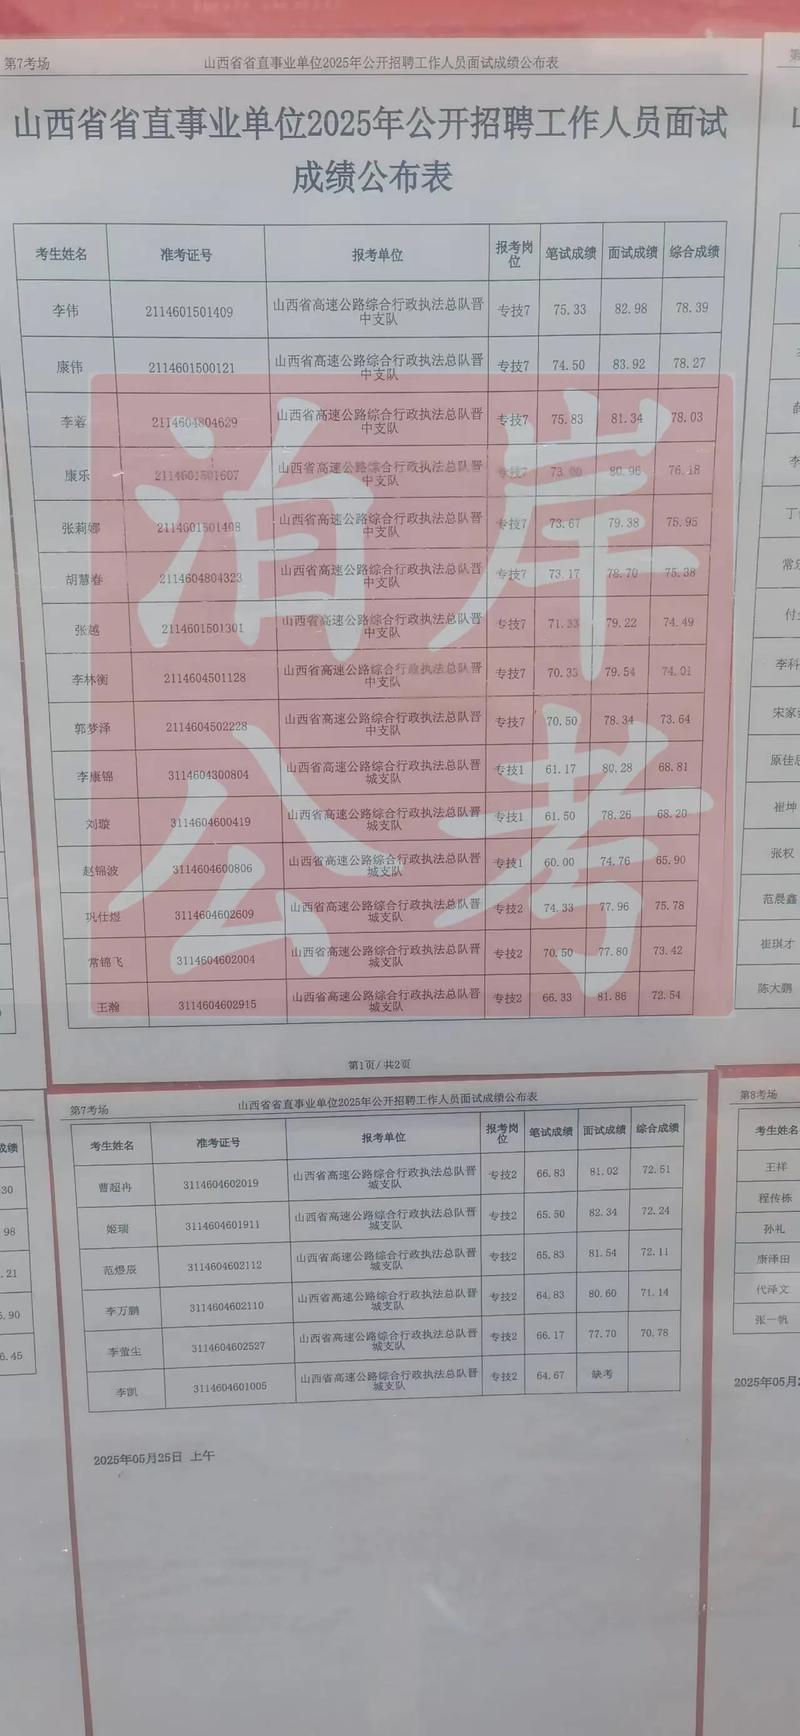 第7考场 山西省省直事业单位2025年公开招聘工作人员面试成绩公布表
山西省省直事业单位2025年公开招聘工作人员面试
成绩公布表
考生姓名 准考证号 报考单位 报考岗位 笔试成绩 面试成绩 综合成绩
李伟 2114601501409 山西省高速公路综合行政执法总队晋中支队 专技7 75.33 82.98 78.39
康伟 2114601500121 山西省高速公路综合行政执法总队晋中支队 专技7 74.50 83.92 78.27
李蓉 2114604804629 山西省高速公路综合行政执法总队晋中支队 专技7 75.83 81.34 78.03
康乐 2114601501607 山西省高速公路综合行政执法总队晋中支队 专技7 73.00 80.96 76.18
张莉娜 2114601501408 山西省高速公路综合行政执法总队晋中支队 专技7 73.67 79.38 75.95
胡慧春 2114604804323 山西省高速公路综合行政执法总队晋中支队 专技7 73.17 78.70 75.38
张越 2114601501301 山西省高速公路综合行政执法总队晋中支队 专技7 71.33 79.22 74.49
李林衡 2114604501128 山西省高速公路综合行政执法总队晋中支队 专技7 70.33 79.54 74.01
郭梦泽 2114604502228 山西省高速公路综合行政执法总队晋中支队 专技7 70.50 78.34 73.64
李康锦 3114604300804 山西省高速公路综合行政执法总队晋城支队 专技1 61.17 80.28 68.81
刘璇 3114604600419 山西省高速公路综合行政执法总队晋城支队 专技1 61.50 78.26 68.20
赵锦波 3114604600806 山西省高速公路综合行政执法总队晋城支队 专技1 60.00 74.76 65.90
巩仕煜 3114604602609 山西省高速公路综合行政执法总队晋城支队 专技2 74.33 77.96 75.78
常锦飞 3114604602004 山西省高速公路综合行政执法总队晋城支队 专技2 70.50 77.80 73.42
王瀚 3114604602915 山西省高速公路综合行政执法总队晋城支队 专技2 66.33 81.86 72.54
泊岸
公考
第1页/共2页
第7考场 山西省省直事业单位2025年公开招聘工作人员面试成绩公布表
考生姓名 准考证号 报考单位 报考岗位 笔试成绩 面试成绩 综合成绩
曹超冉 3114604602019 山西省高速公路综合行政执法总队晋城支队 专技2 66.83 81.02 72.51
姬瑞 3114604601911 山西省高速公路综合行政执法总队晋城支队 专技2 65.50 82.34 72.24
范煜辰 3114604602112 山西省高速公路综合行政执法总队晋城支队 专技2 65.83 81.54 72.11
李万鹏 3114604602110 山西省高速公路综合行政执法总队晋城支队 专技2 64.83 80.60 71.14
李萤尘 3114604602527 山西省高速公路综合行政执法总队晋城支队 专技2 66.17 77.70 70.78
李凯 3114604601005 山西省高速公路综合行政执法总队晋城支队 专技2 64.67 缺考
2025年05月25日 上午
李科
宋家
原佳
崔坤
张权
范晨鑫
崔琪才
陈大鹏
第8考场
考生姓名
王祥
程传栋
孙礼
康泽田
代泽文
张一帆
2025年05月2
成绩
30
98
.21
5.90
6.45